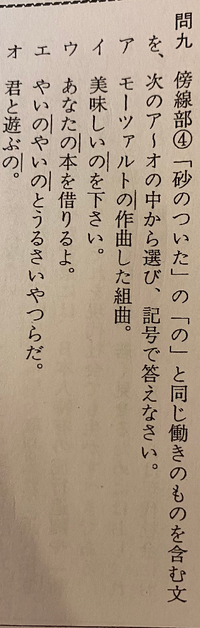 問九 傍線部④「砂のついた」の「の」と同じ働きのものを含む文
を、次のア～オの中から選び、記号で答えなさい。
ア モーツァルトの作曲した組曲。
イ 美味しいのを下さい。
ウ あなたの本を借りるよ。
エ やいのやいのとうるさいやつらだ。
オ 君と遊ぶの。